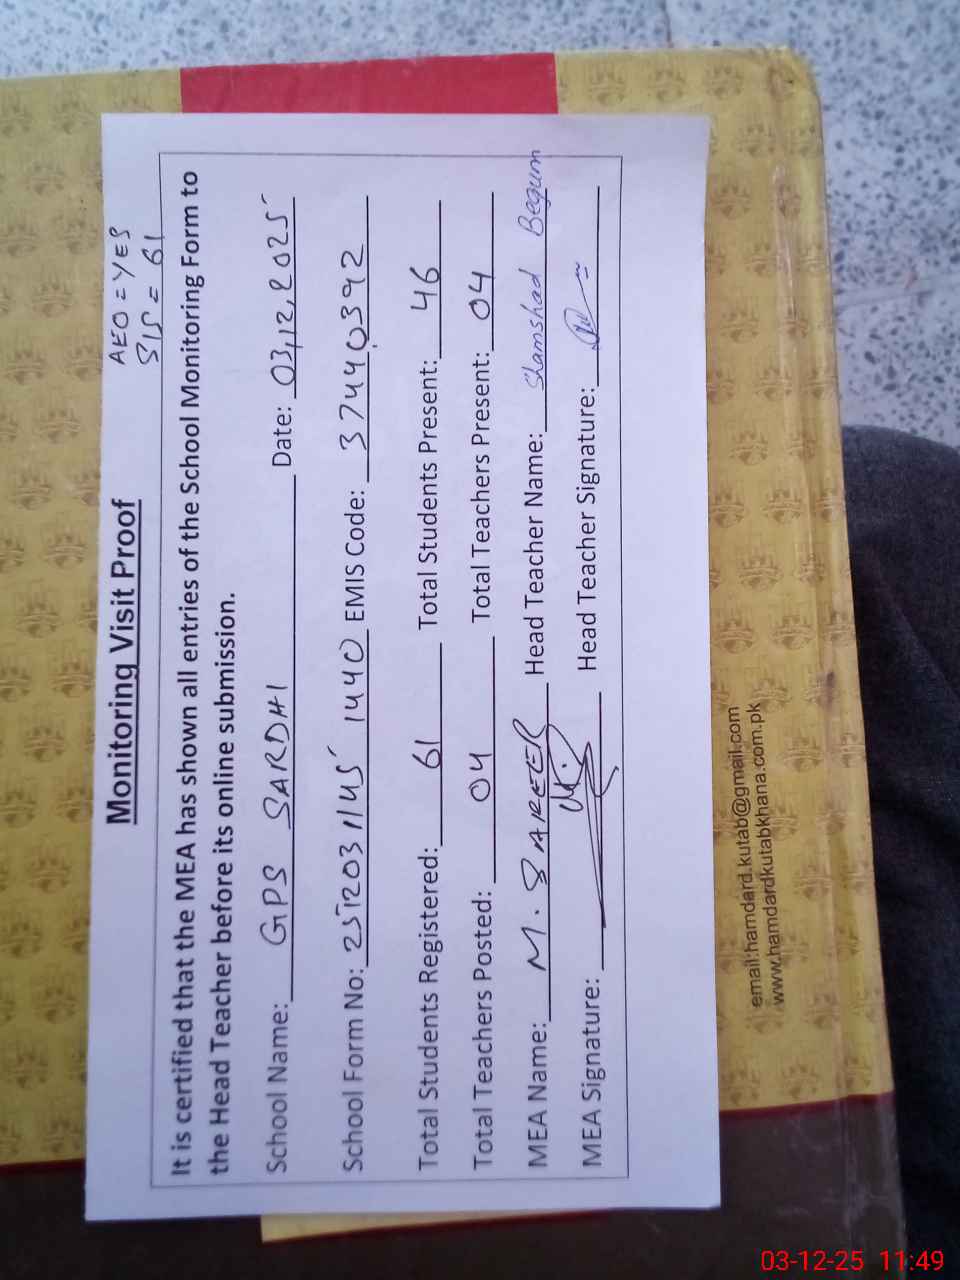 Monitoring Visit Proof
AEO = YES
SIS = 61
It is certified that the MEA has shown all entries of the School Monitoring Form to
the Head Teacher before its online submission.
School Name: GPS SARDHI Date: 03,12,2025
School Form No: 251203 1145 1440 EMIS Code: 37440392
Total Students Registered: 61 Total Students Present: 46
Total Teachers Posted: 04 Total Teachers Present: 04
MEA Name: M. Head Teacher Name: Shamshad Begum
MEA Signature: Head Teacher Signature:
email:hamdard.kutab@gmail.com
www.hamdardkutabkhana.com.pk
03-12-25 11:49